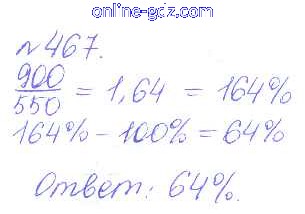 online-gdz.com
№467.
900/550 = 1,64 = 164%
164% - 100% = 64%
Ответ: 64%.